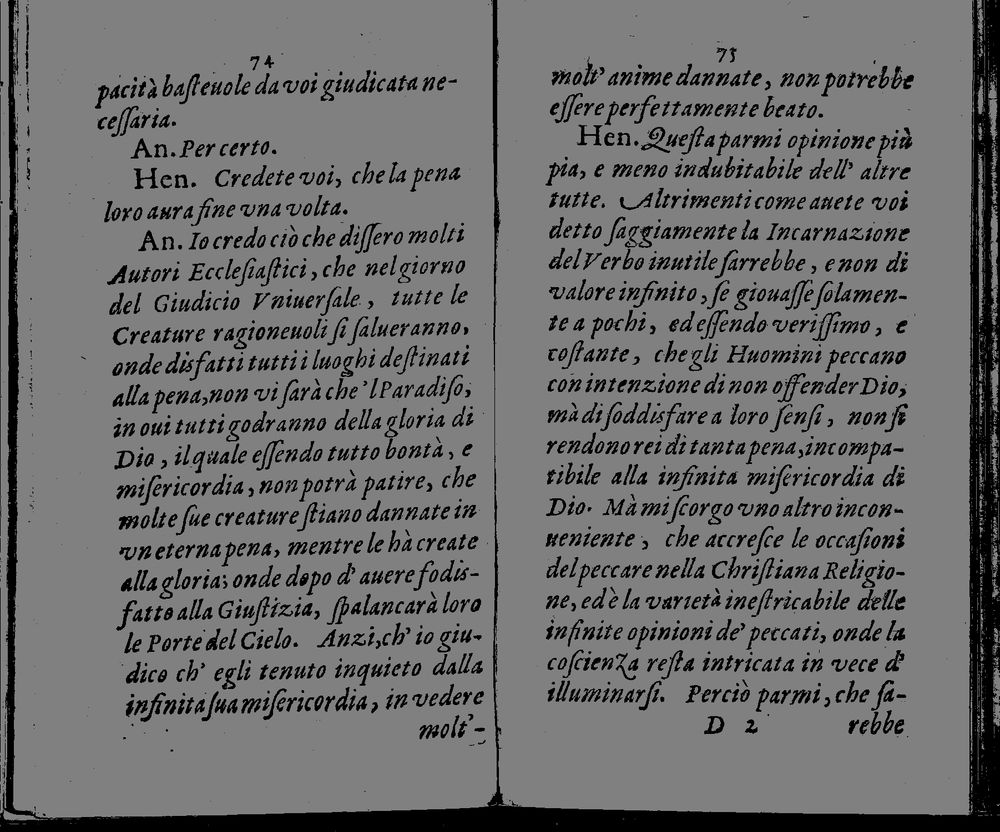 74
pacità baſteuole da voi giudicata ne-
ceſſaria.
An. Per certo.
Hen. Credete voi, che la pena
loro aura fine vna volta.
An. Io credo ciò che diſſero molti
Autori Eccleſiaſtici, che nel giorno
del Giudicio Vniuerſale, tutte le
Creature ragioneuoli ſi ſalueranno,
onde disfatti tutti i luoghi deſtinati
alla pena, non vi ſarà che 'l Paradiſo,
in oui tutti godranno della gloria di
Dio, il quale eſſendo tutto bontà, e
miſericordia, non potrà patire, che
molte ſue creature ſtiano dannate in
vn eterna pena, mentre le hà create
alla gloria; onde dopo d' auere ſodis-
fatto alla Giuſtizia, ſpalancarà loro
le Porte del Cielo. Anzi, ch' io giu-
dico ch' egli tenuto inquieto dalla
infinita ſua miſericordia, in vedere
molt'-
75
molt' anime dannate, non potrebbe
eſſere perfettamente beato.
Hen. Queſta parmi opinione più
pia, e meno indubitabile dell' altre
tutte. Altrimenti come auete voi
detto ſaggiamente la Incarnazione
del Verbo inutile ſarrebbe, e non di
valore infinito, ſe giouaſſe ſolamen-
te a pochi, ed eſſendo veriſſimo, e
coſtante, che gli Huomini peccano
con intenzione di non offender Dio,
mà di ſoddisfare a loro ſenſi, non ſi
rendono rei di tanta pena, incompa-
tibile alla infinita miſericordia di
Dio. Mà mi ſcorgo vno altro incon-
ueniente, che accreſce le occaſioni
del peccare nella Chriſtiana Religio-
ne, ed è la varietà ineſtricabile delle
infinite opinioni de' peccati, onde la
coſcienza reſta intricata in vece d'
illuminarſi. Perciò parmi, che ſa-
D 2 rebbe